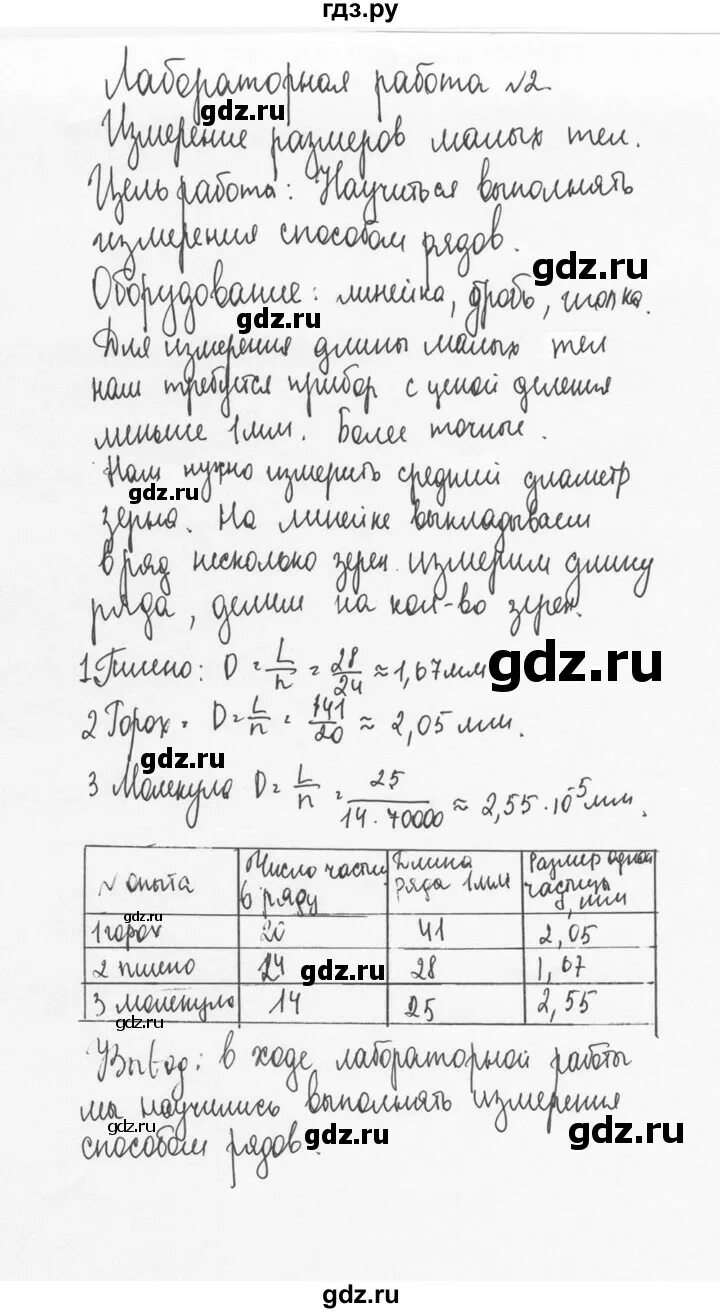 гдз.ру
Лабораторная работа №2
gdz.ru
Измерение размеров малых тел.
Цель работа: Научиться выполнять
измерения способом рядов.
gdz.ru
Оборудование: линейка, дробь, иголка.
gdz.ru
Для измерения длины малых тел
нам требуется прибор с ценой деления
меньше 1мм. Более точные.
Нам нужно измерить средний диаметр
gdz.ru
зерна. На линейке выкладываем
в ряд несколько зерен. измерим длину
ряда, делим на кол-во зерен.
1 Пшено: D = L/n = 28/24 ≈ 1,67мм
gdz.ru
2 Горох = D = L/n = 141/20 ≈ 2,05 мм.
gdz.ru
3 Молекула D = L/n = 25/14·70000 ≈ 2,55·10⁻⁵мм.
№ опыта | Число частиц в ряду | Длина ряда 1мм | Размер одной частицы, мм
gdz.ru
1 горох | 20 | 41 | 2,05
2 пшено | 24 | 28 | 1,67
gdz.ru
3 молекула | 14 | 25 | 2,55
gdz.ru
Вывод: в ходе лабораторной работы
мы научились выполнять измерения
gdz.ru
gdz.ru
gdz.ru
способом рядов.
gdz.ru